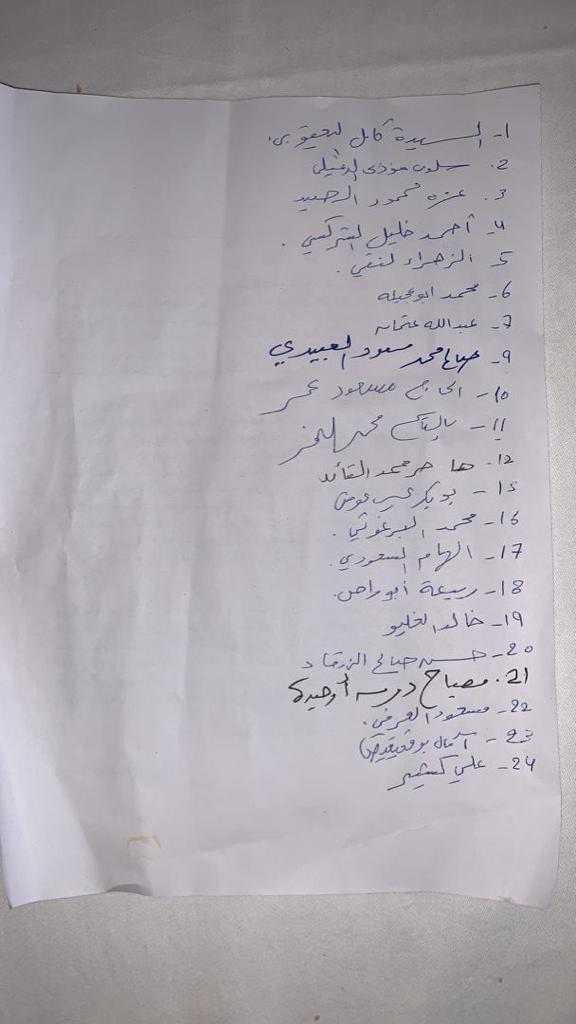 1- السيدة كامل اليعقوبي.
2. سلوى فوزي الدغيلي
3. عزه محمود الصيد
4- أحمد خليل الشركسي.
5- الزهراء لنقي.
6- محمد ابو عجيله
7- عبدالله عثمان
9- صالح محمد مسعود العبيدي
10- الحاج مسعود عمر
11- محمد
12- هاجر محمد القائد
15- بوبكر عوض
16- محمد البرغوثي.
17- الهام السعودي.
18- ربيعة أبوراص.
19- خالد الغليو
20- حسن صالح الزرقاء
21. مصباح دومه أوحيدة
22- مسعود العرفي.
23- آمال بوقعيقيص
24- علي كشير